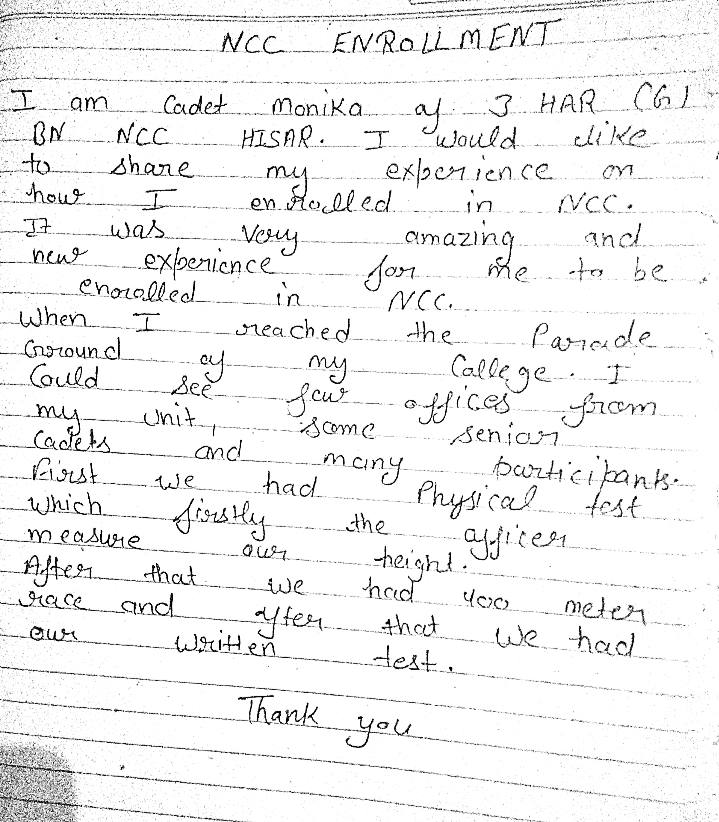 NCC ENROLLMENT
I am Cadet Monika of 3 HAR (G)
BN NCC HISAR. I would like
to share my experience on
how I enrolled in NCC.
It was very amazing and
new experience for me to be
enrolled in NCC.
When I reached the Parade
Ground of my College. I
Could see few offices from
my unit, some senior
Cadets and many participants.
First we had Physical test
which firstly the officer
measure our height.
After that we had 400 meter
race and after that we had
our written test.
Thank you